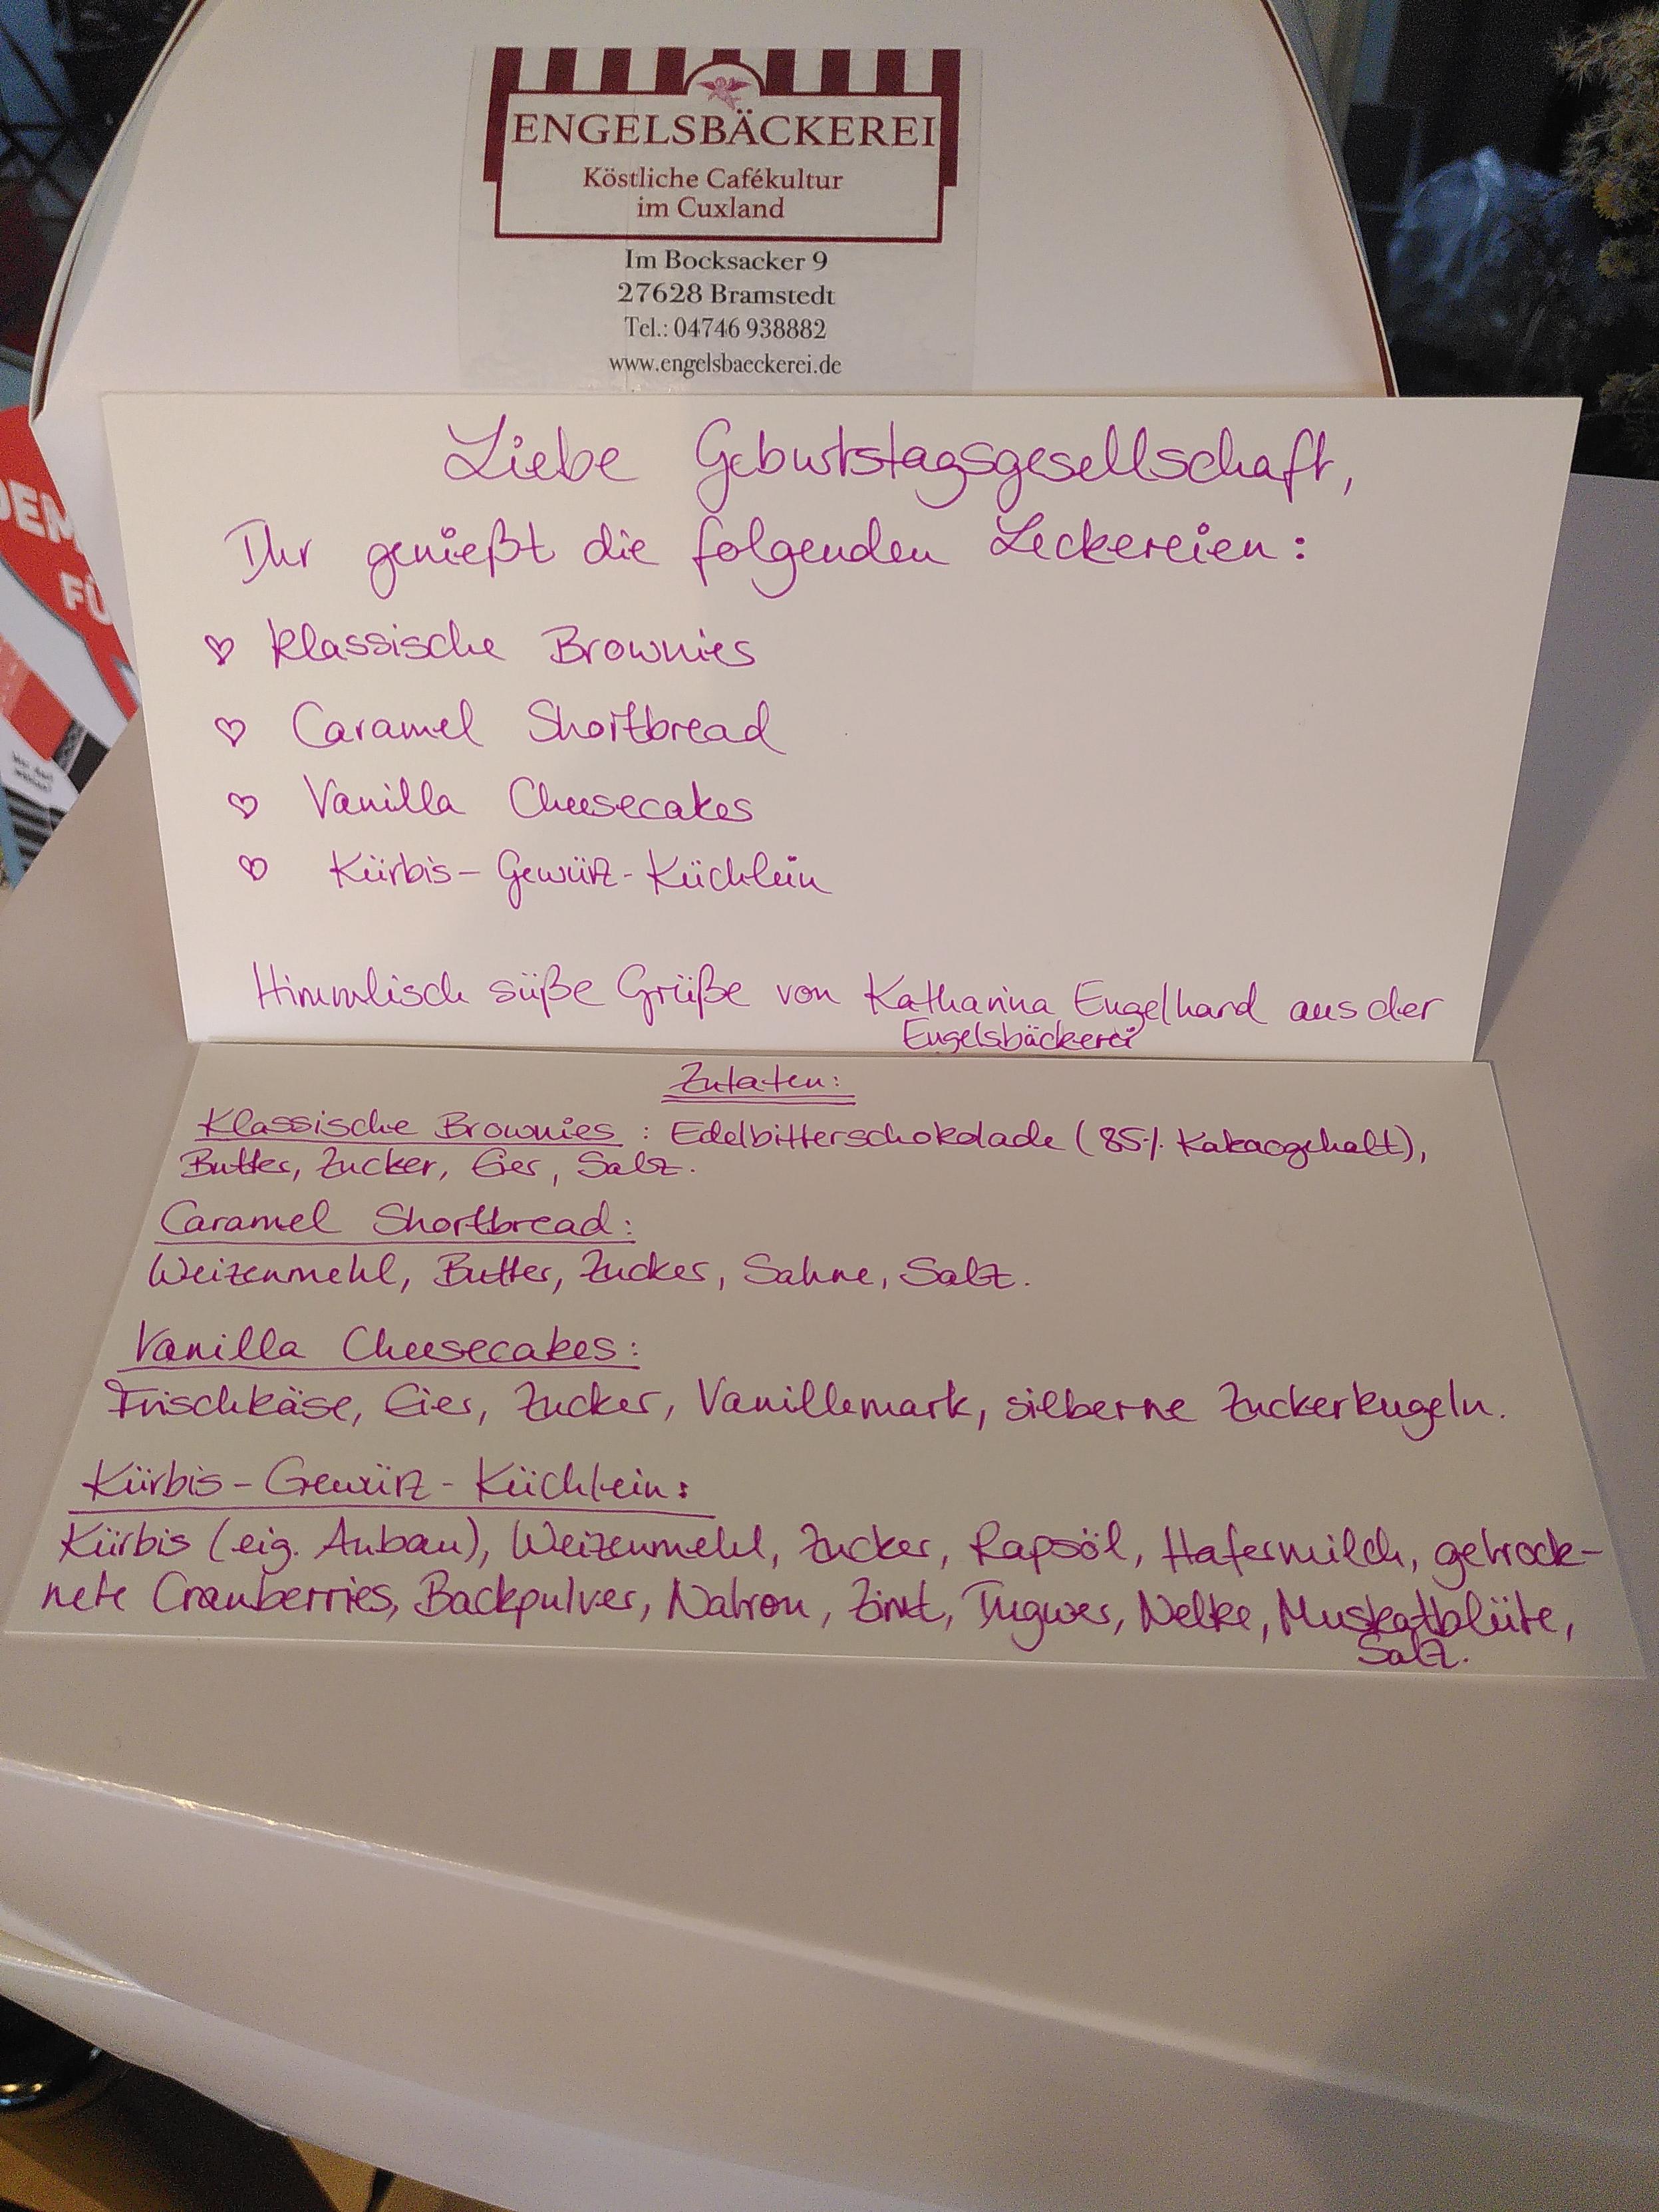 ENGELSBÄCKEREI
Köstliche Cafékultur
im Cuxland
Im Bocksacker 9
27628 Bramstedt
Tel.: 04746 938882
www.engelsbaeckerei.de
DEM
FÜ
Liebe Geburtstagsgesellschaft,
Ihr genießt die folgenden Leckereien:
♡ klassische Brownies
♡ Caramel Shortbread
♡ Vanilla Cheesecakes
♡ Kürbis-Gewürz-Küchlein
Himmlisch süße Grüße von Katharina Engelhard aus der
Engelsbäckerei
Zutaten:
Klassische Brownies: Edelbitterschokolade (85% Kakaogehalt),
Butter, Zucker, Eier, Salz.
Caramel Shortbread:
Weizenmehl, Butter, Zucker, Sahne, Salz.
Vanilla Cheesecakes:
Frischkäse, Eier, Zucker, Vanillemark, silberne Zuckerkugeln.
Kürbis-Gewürz-Küchlein:
Kürbis (eig. Anbau), Weizenmehl, Zucker, Rapsöl, Hafermilch, getrock-
nete Cranberries, Backpulver, Natron, Zimt, Ingwer, Nelke, Muskatblüte,
Salz.